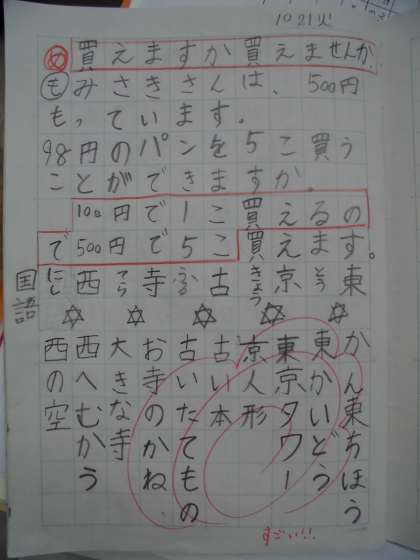 10.21火
め 買えますか買えませんか。
も みさきさんは、500円
もっています。
98円のパンを5こ買う
ことができますか。
100円で1こ買えるの
で500円で5こ買えます。
国語
東 とう
京 きょう
古 ふる
寺 てら
西 にし
かん東ちほう
東かいどう
東京タワー
京人形
古い本
古いたてもの
お寺のかね
大きな寺
西へむかう
西の空
すごい!!